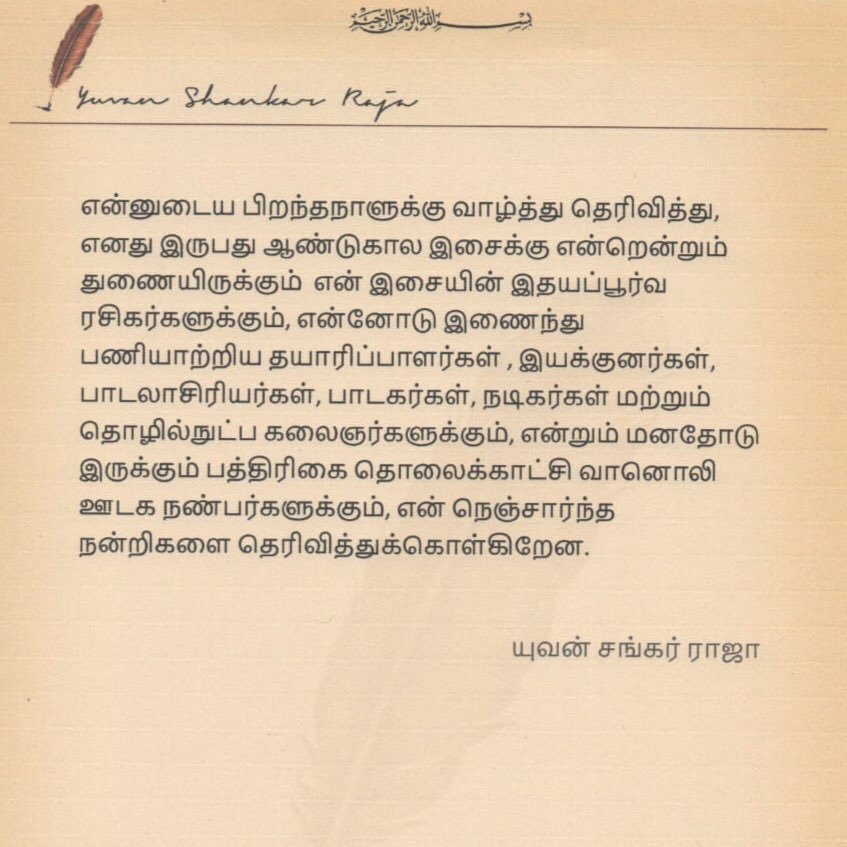 بسم الله الرحمن الرحيم
Yuvan Shankar Raja
என்னுடைய பிறந்தநாளுக்கு வாழ்த்து தெரிவித்து,
எனது இருபது ஆண்டுகால இசைக்கு என்றென்றும்
துணையிருக்கும் என் இசையின் இதயப்பூர்வ
ரசிகர்களுக்கும், என்னோடு இணைந்து
பணியாற்றிய தயாரிப்பாளர்கள் , இயக்குனர்கள்,
பாடலாசிரியர்கள், பாடகர்கள், நடிகர்கள் மற்றும்
தொழில்நுட்ப கலைஞர்களுக்கும், என்றும் மனதோடு
இருக்கும் பத்திரிகை தொலைக்காட்சி வானொலி
ஊடக நண்பர்களுக்கும், என் நெஞ்சார்ந்த
நன்றிகளை தெரிவித்துக்கொள்கிறேன.
யுவன் சங்கர் ராஜா